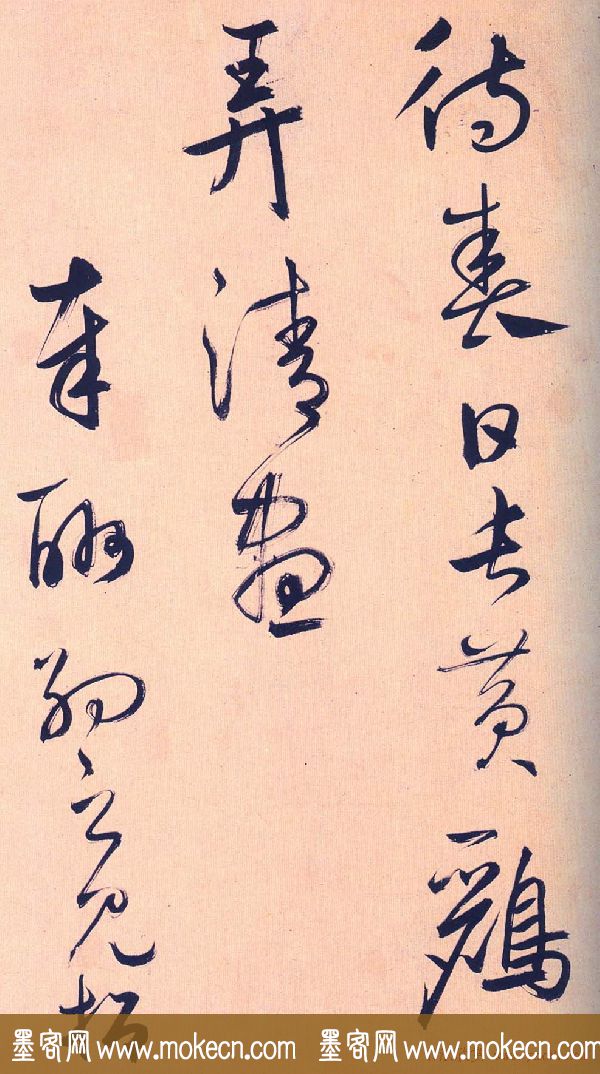 待春日長黃鸝
弄清晝
奉酬之見招
墨客网 www.mokecn.com 墨客网 www.mokecn.com